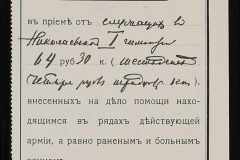 въ пріемѣ отъ служащихъ в
Николаевской I гимназіи
64 руб 30 к. (шестьдесят
четыре рубл тридцать коп.)
внесенныхъ на дѣло помощи нахо-
дящимся въ рядахъ дѣйствующей
арміи, а равно раненымъ и больнымъ